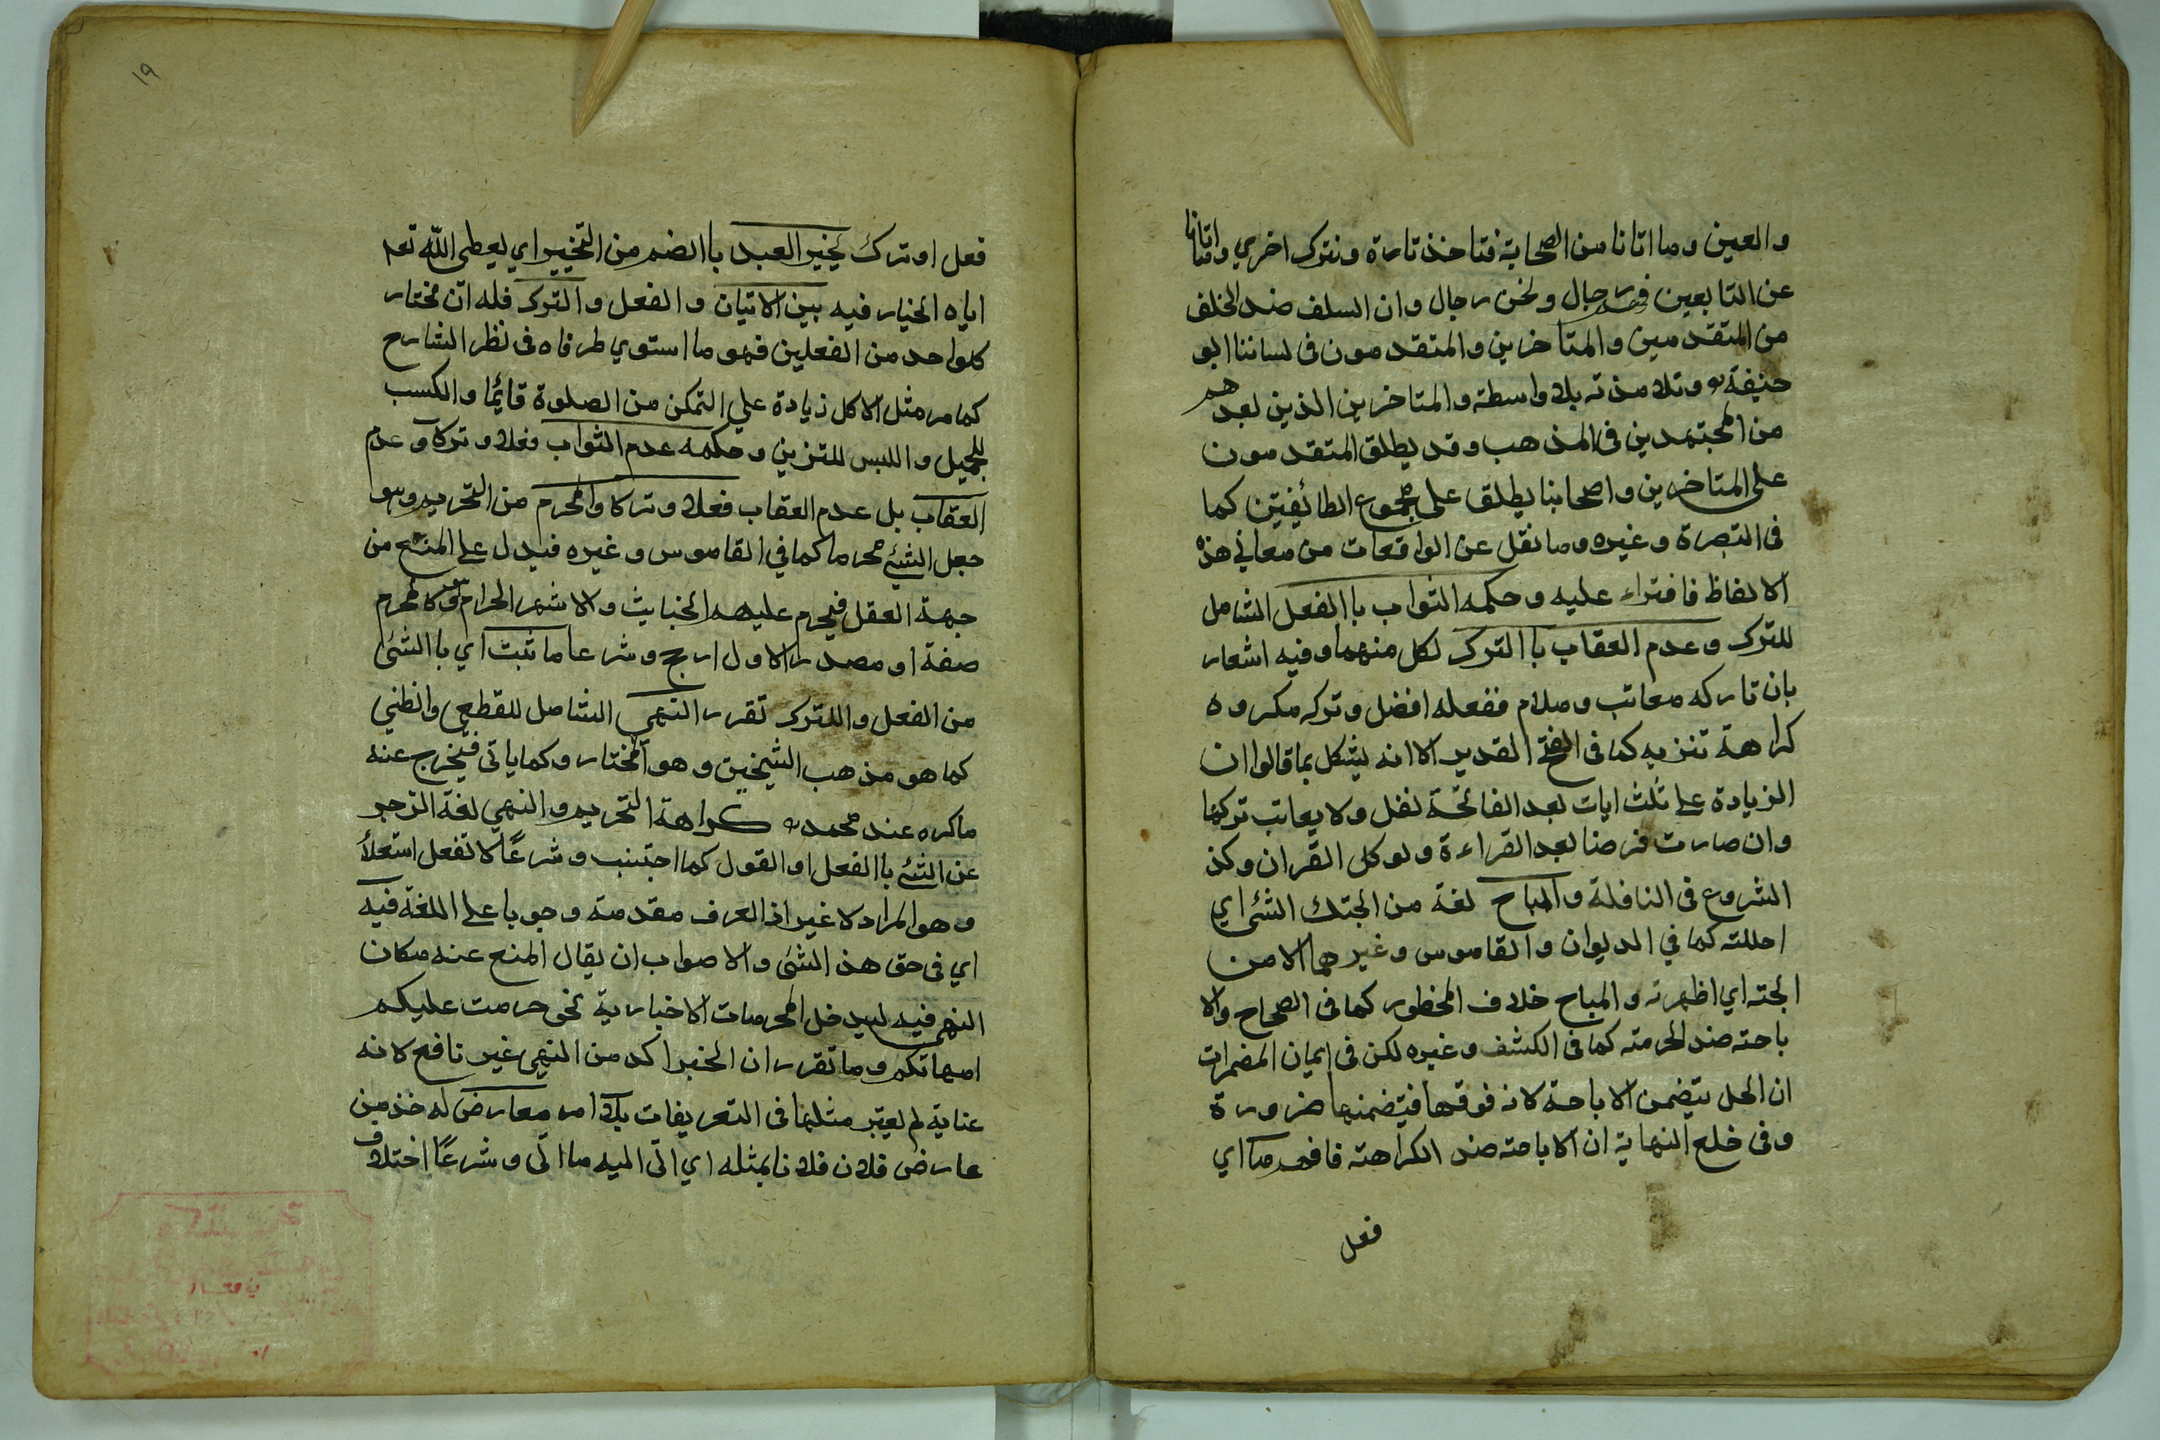 والعين وما اتانا من الصحابة فتاخذ تارة ونترك اخري واتانا
عن التابعين رجال ونحن رجال وان السلف ضد الخلف
من المتقدمين والمتاخرين والمتقدمون فى لساننا ابو
حنيفة وتلامذته بلا واسطة والمتاخرين الذين بعدهم
من المجتهدين فى المذهب وقد يطلق المتقدمون
على المتاخرين واصحابنا يطلق على مجموع الطائفيتين كما
فى التبصرة وغيره وما نقل عن الواقعات من معاني هذه
الالفاظ فافتراء عليه وحكمه الثواب باالفعل الشامل
للترك وعدم العقاب باالترك لكل منهما وفيه اشعار
بان تاركه معاتب وملام ففعله افضل وتركه مكروه
كراهة تنزيه كما فى الفتح القدير الا انه يشكل بما قالوا ان
الزيادة على ثلث ايات بعد الفاتحة نفل ولا يعاتب تركها
وان صارت فرضا بعد القراءة ولو كل القران وكذ
الشروع فى النافلة والمباح لغة من ابحتك الشئ اي
احللته كما في الديوان والقاموس وغيرهما لا من
ابحته اي اظهرته والمباح خلاف المحظور كما فى الصحاح والا
باحته ضد الحرمته كما فى الكشف وغيره لكن فى ايمان المضمرات
ان الحل يتضمن الاباحة لانه فوقها فيتضمنها ضرورة
وفى خلع النهاية ان الاباحته ضد الكراهته فافهم ما اي
فعل
١٩
فعل او ترك يخير العبد باالضم من التخيير اي يعطى الله تعم
اياه الخيار فيه بين الاتيان والفعل والترك فله ان مختار
كلواحد من الفعلين فهو ما استوي طرفاه فى نظر الشارح
كما مر مثل الاكل زيادة على التمكن من الصلوة قائما والكسب
للجميل واللبس للتزين وحكمه عدم الثواب فعلا وتركا وعدم
العقاب بل عدم العقاب فعلا وتركا والمحرم من التحريم وهو
جعل الشئ محرما كما في القاموس وغيره فيدل على المنع من
جهة العقل فيحرم عليهم الخبايث والاشهر الحرام كالمحرم
صفة او مصدر الاول ارجح وشرعا ما ثبت اي باالشئ
من الفعل والترك تقرر النهى الشامل للقطعي والظني
كما هو مذهب الشيخين وهو المختار وكما ياتى فيخرج عنه
ماكره عند محمد كراهة التحريم والنهي لغة الزجر
عن الشئ باالفعل او القول كما اجتنب وشرعًا لا تفعل استعلاً
وهو المراد لا غير اذ العرف مقدمته وجوبا على اللغة فيه
اي فى حق هذ الشئ والاصواب ان يقال المنع عنه مكان
النهى فيه ليدخل المحرمات الاخبارية نحو حرمت عليكم
امهاتكم وما تقرر ان الخبر اكد من النهي غير نافع لانه
عناية لم يعتبر مثلها فى التعريفات بلا امر معارض له خذ من
عارض فلان فلانا بمثله اي اتى اليه ما اتى وشرعًا اختلاف